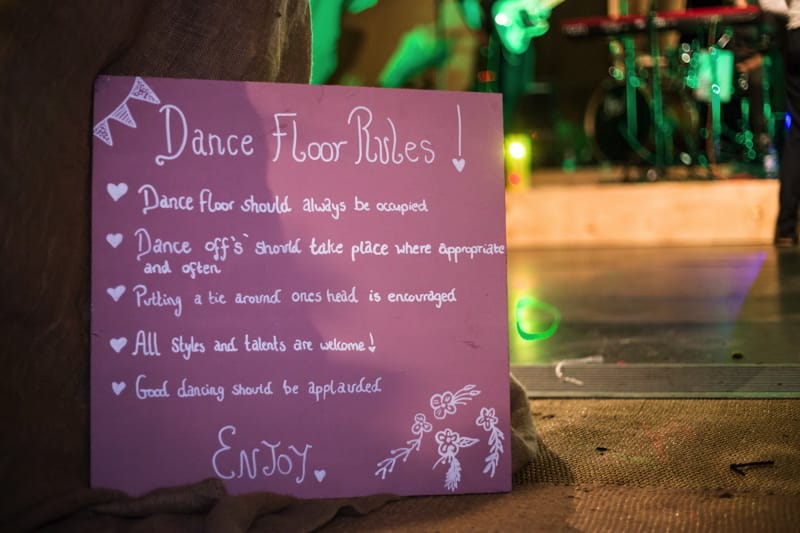 Dance Floor Rules!
Dance floor should always be occupied
Dance off's should take place where appropriate
and often
Putting a tie around ones head is encouraged
All styles and talents are welcome!
Good dancing should be applauded
ENJOY